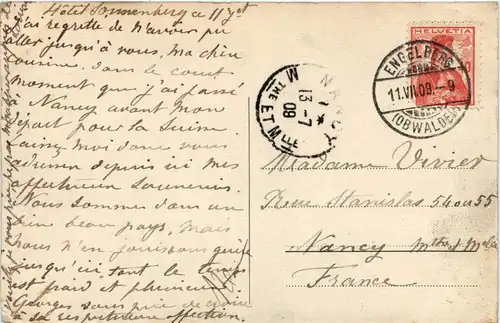 Hôtel Sonnenberg ce 11 juillet
j'ai regretté de n'avoir pu
aller jusqu'à vous, ma chère
cousine, dans le court
moment que j'ai passé
à Nancy avant mon
départ pour la Suisse
laissez moi donc vous
adresser depuis ici mes
affectueux souvenirs.
Nous sommes dans un
bien beau pays, mais
nous n'en jouissons guère
jusqu'ici, tant le temps
est froid et pluvieux
Georges vous prie de croire
à sa respectueuse affection.
HELVETIA
ENGELBERG
11.VII.09.-9
(OBWALDEN)
NANCY
13-7
09
MTHE ET MLLE
Madame Vivier
Rue Stanislas 54 ou 55
Nancy Mthe et Mlle
France